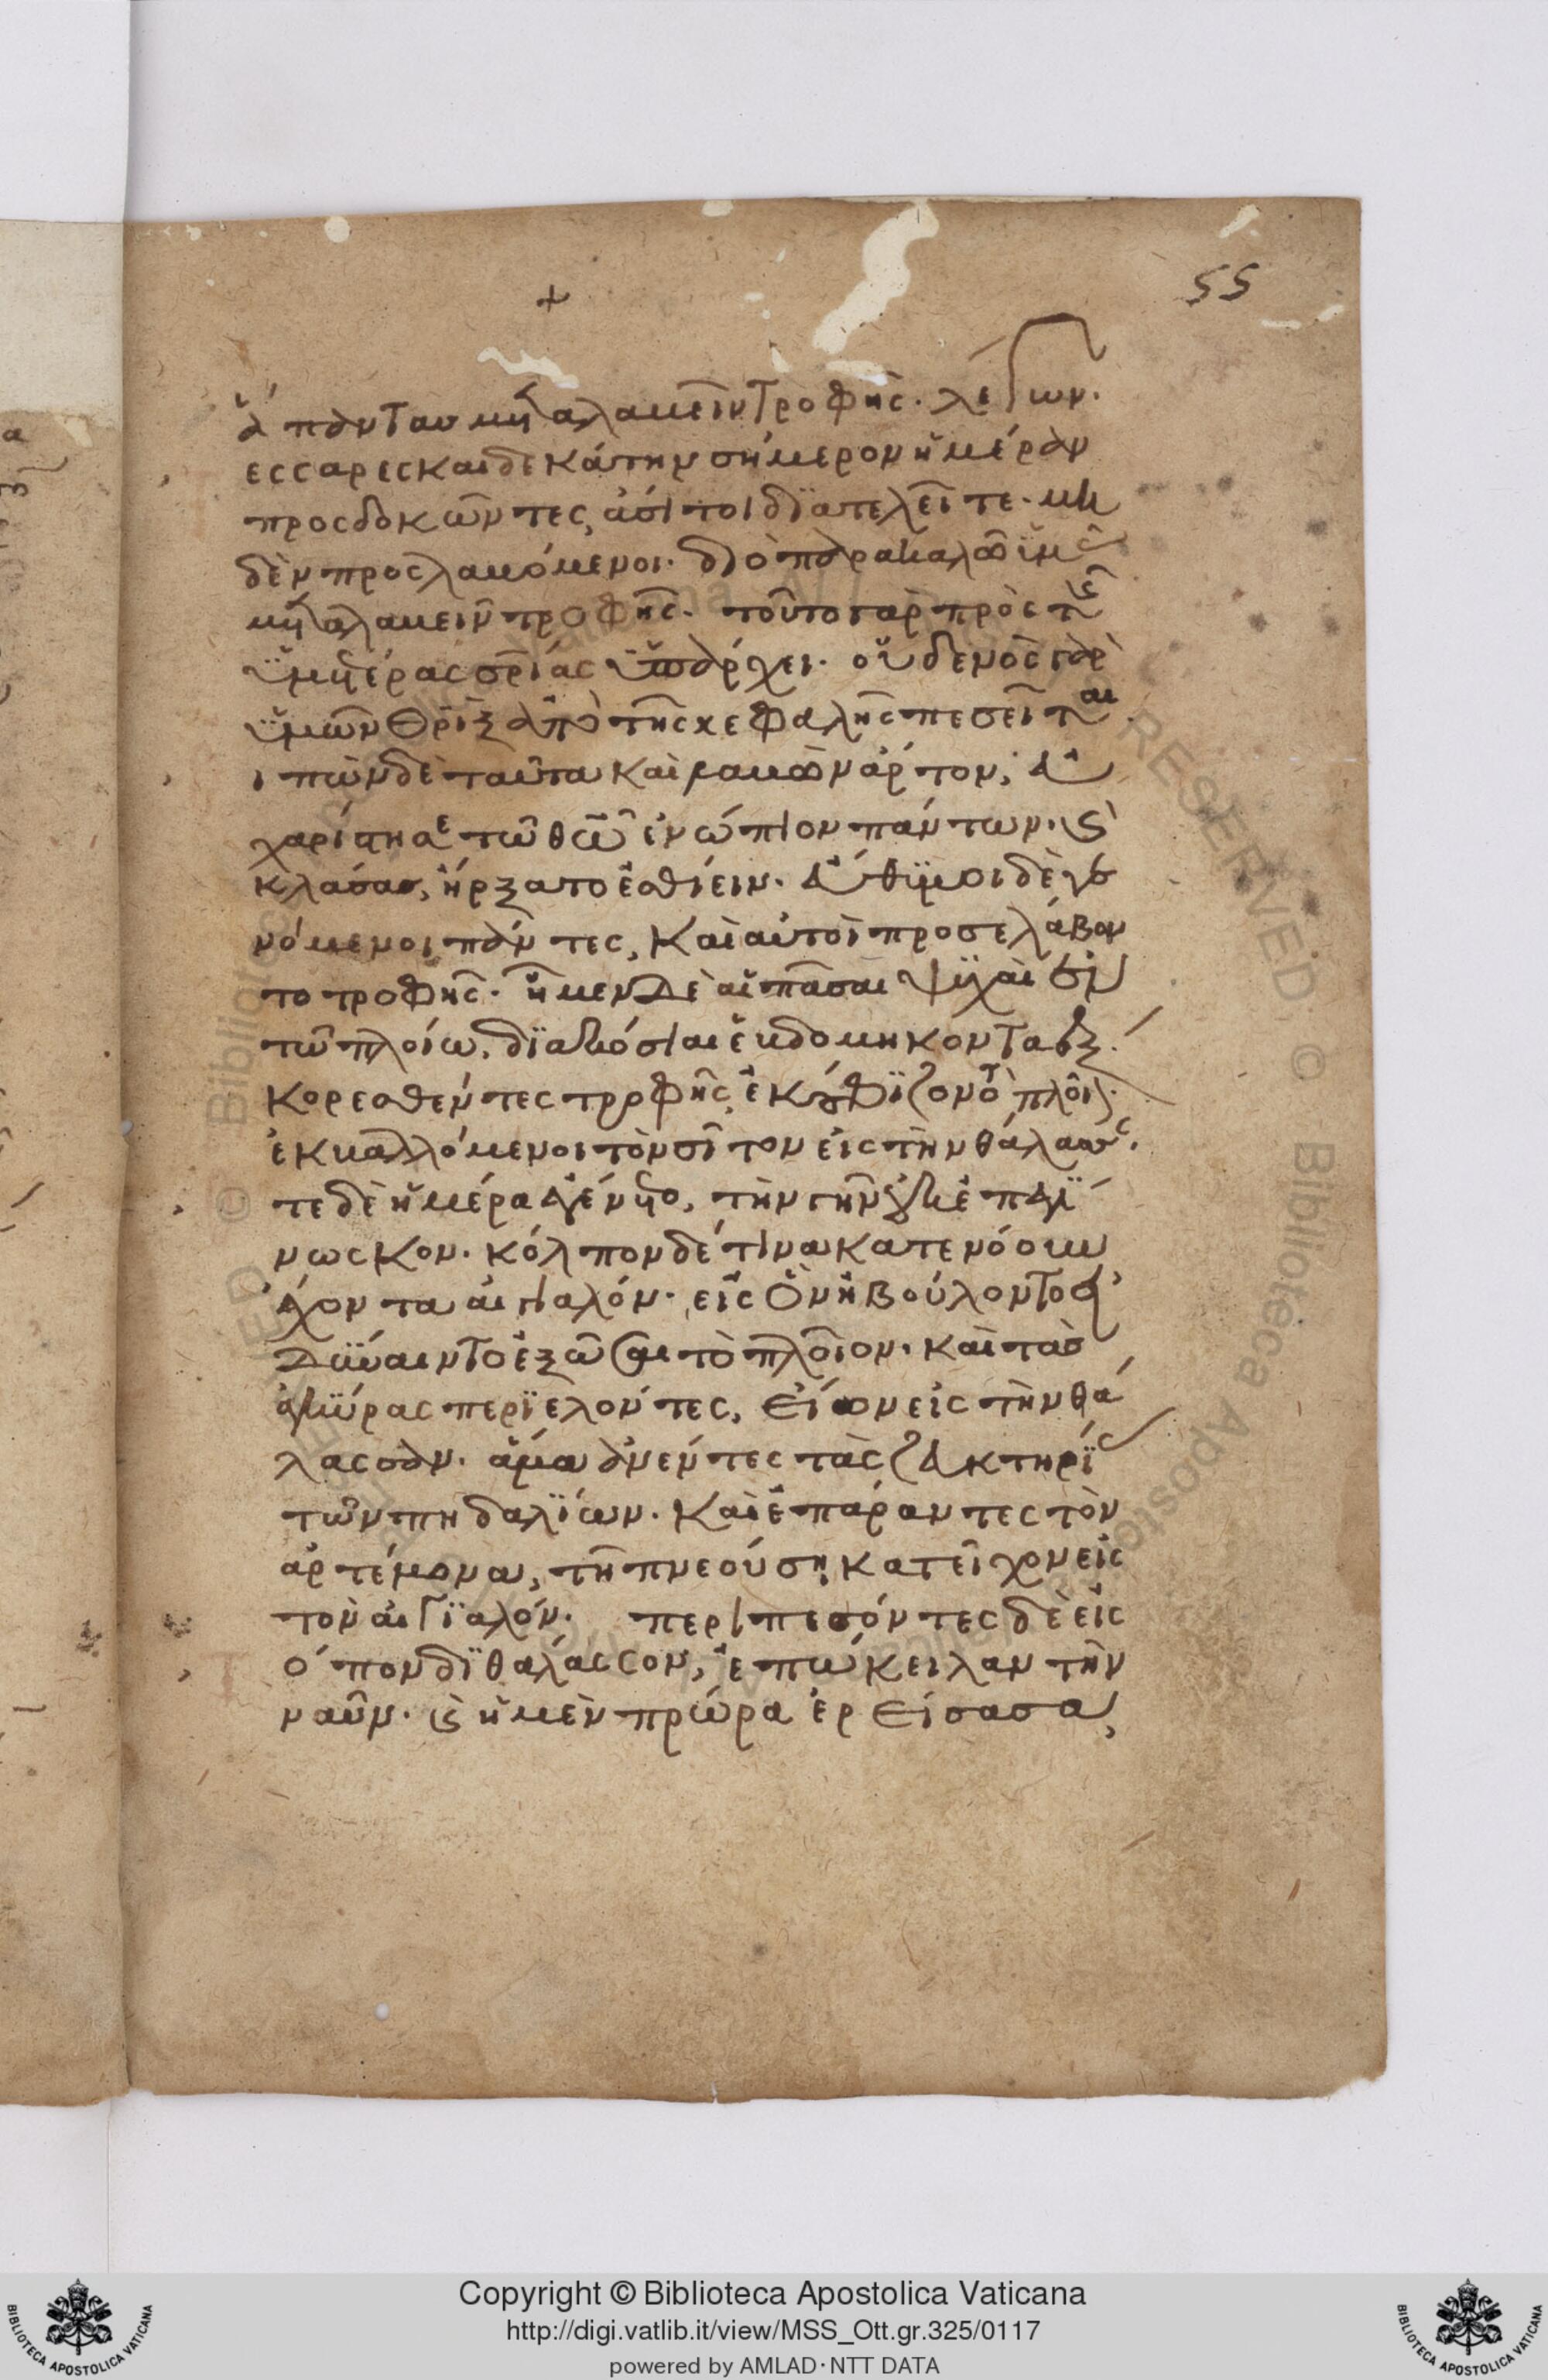 55
ἅπαντας μεταλαβεῖν τροφῆς. λέγων.
εσσαρεσκαιδεκάτην σήμερον ἡμέραν
προσδοκῶντες, ἄσιτοι διατελεῖτε. μη
δὲν προσλαβόμενοι. διὸ παρακαλῶ ὑμᾶς
μεταλαβεῖν τροφῆς. τοῦτο γὰρ πρὸς τῆς
ὑμετέρας σρίας ὑπάρχει. οὐδενὸς γὰρ
ὑμῶν θρὶξ ἀπὸ τῆς κεφαλῆς πεσεῖται.
ιπὼν δὲ ταῦτα καὶ λαβὼν ἄρτον, εὐ
χαρίστησε τῶ θῶ ἐνώπιον πάντων. καὶ
κλάσας, ἤρξατο ἐσθίειν. εὔθυμοι δὲ γε
νόμενοι πάντες, καὶ αὐτοὶ προσελάβον
το τροφῆς. ἤμεν δὲ αἱ πᾶσαι ψυχαὶ ἐν
τῶ πλοίω, διακόσιαι ἑβδομηκονταέξ.
κορεσθέντες τροφῆς, ἐκούφιζον τὸ πλοῖον.
ἐκβαλλόμενοι τὸν σῖτον εἰς τὴν θάλασσ.
τε δὲ ἡμέρα ἐγένετο, τὴν γῆν οὐκ ἐπεγί
νωσκον. κόλπον δέ τινα κατενόουν
ἔχοντα αἰγιαλόν. εἰς ὃν ἠβούλοντο εἰ
δύναιντο ἐξῶσαι τὸ πλοῖον. καὶ τὰς
ἀγκύρας περιελόντες, εἴων εἰς τὴν θά
λασσαν. ἅμα ἀνέντες τὰς ζευκτηρί
τῶν πηδαλίων. καὶ ἐπάραντες τὸν
ἀρτέμονα, τῆ πνεούση κατεῖχον εἰς
τὸν αἰγιαλόν. περιπεσόντες δὲ εἰς
όπον διθαλάσσον, ἐπώκειλαν τὴν
ναῦν. καὶ ἡ μὲν πρώρα ἐρείσασα,
Copyright © Biblioteca Apostolica Vaticana
http://digi.vatlib.it/view/MSS_Ott.gr.325/0117
powered by AMLAD·NTT DATA